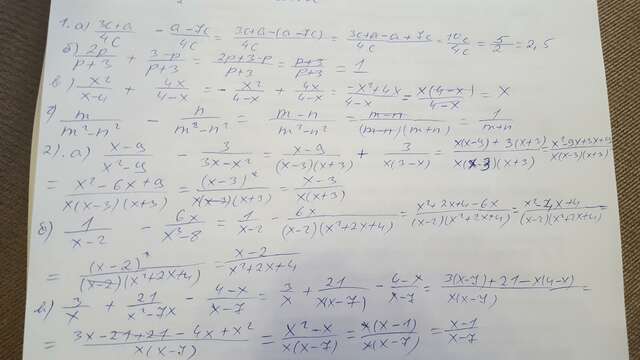 1. а) 3c+a/4c - a-7c/4c = 3c+a-(a-7c)/4c = 3c+a-a+7c/4c = 10c/4c = 5/2 = 2,5
б) 2p/p+3 + 3-p/p+3 = 2p+3-p/p+3 = p+3/p+3 = 1
в) x²/x-4 + 4x/4-x = - x²/4-x + 4x/4-x = -x²+4x/4-x = x(4-x)/4-x = x
г) m/m²-n² - n/m²-n² = m-n/m²-n² = m-n/(m-n)(m+n) = 1/m+n
2). а) x-9/x²-9 - 3/3x-x² = x-9/(x-3)(x+3) + 3/x(3-x) = x(x-9)+3(x+3)/x(x-3)(x+3) = x²-9x+3x+9/x(x-3)(x+3)
= x²-6x+9/x(x-3)(x+3) = (x-3)²/x(x-3)(x+3) = x-3/x(x+3)
б) 1/x-2 - 6x/x³-8 = 1/x-2 - 6x/(x-2)(x²+2x+4) = x²+2x+4-6x/(x-2)(x²+2x+4) = x²-4x+4/(x-2)(x²+2x+4) =
= (x-2)²/(x-2)(x²+2x+4) = x-2/x²+2x+4
в) 3/x + 21/x²-7x - 4-x/x-7 = 3/x + 21/x(x-7) - 4-x/x-7 = 3(x-7)+21-x(4-x)/x(x-7) =
= 3x-21+21-4x+x²/x(x-7) = x²-x/x(x-7) = x(x-1)/x(x-7) = x-1/x-7